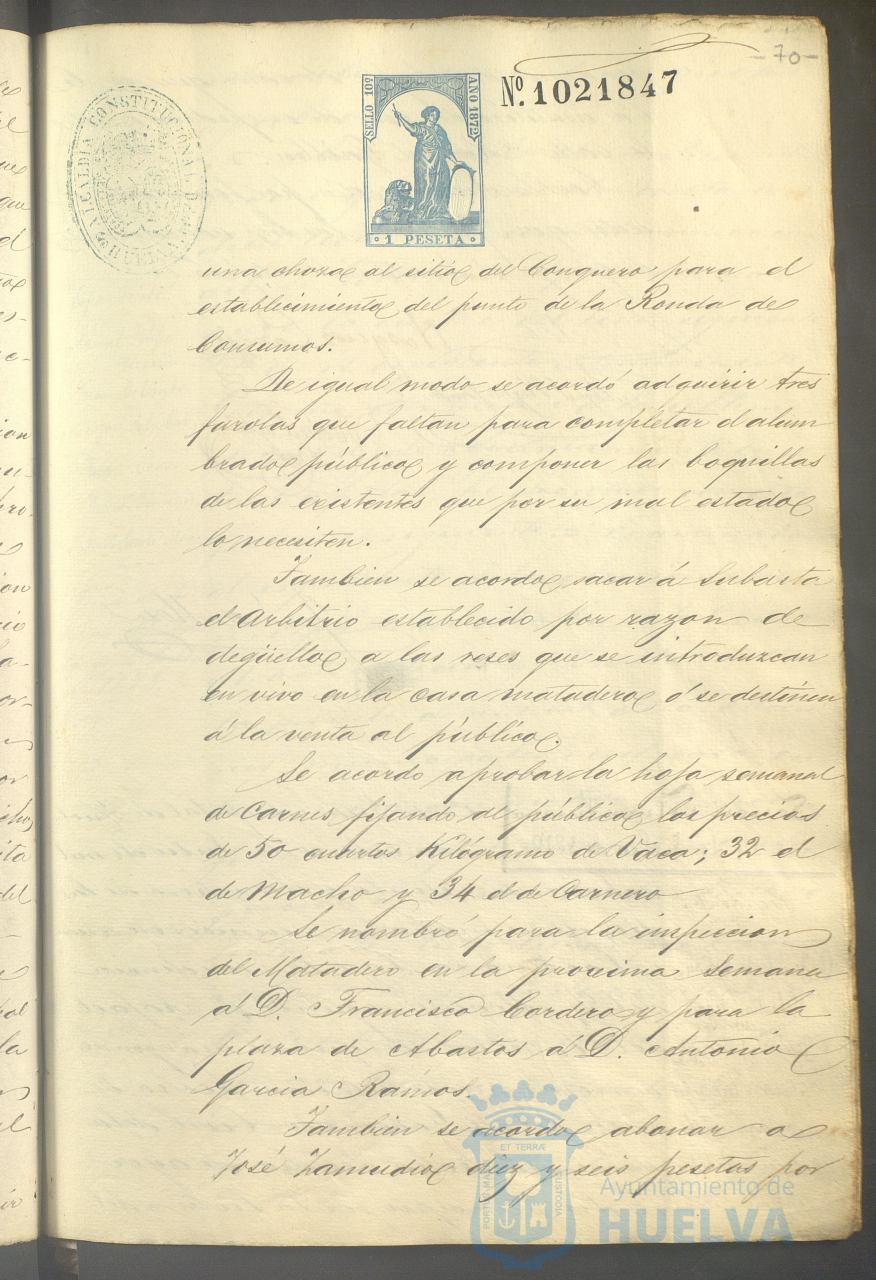 -70-
ALCALDIA CONSTITUCIONAL DE HUELVA
SELLO 10º
AÑO 1872
1 PESETA
Nº. 1021847
una choza al sitio del Conquero para el
establecimiento del punto de la Ronda de
Consumos.
De igual modo se acordó adquirir tres
farolas que faltan para completar el alum
brado público y componer las boquillas
de las existentes que por su mal estado
lo necesiten.
Tambien se acordo sacar á Subasta
el arbitrio establecido por razon de
degüello a las reses que se introduzcan
en vivo en la casa matadero ó se destinen
á la venta al público.
Se acordo aprobar la hoja semanal
de carnes fijando al público los precios
de 50 cuartos Kilógramo de Vaca; 32 el
de Macho y 34 el de Carnero
Se nombró para la inspeccion
del Matadero en la proxima Semana
á D. Francisco Cordero y para la
plaza de Abastos á D. Antonio
Garcia Ramos.
Tambien se acordo abonar a
José Zamudio diez y seis pesetas por
PORTUS MARIS ET TERRÆ CUSTODIA
Ayuntamiento de
HUELVA